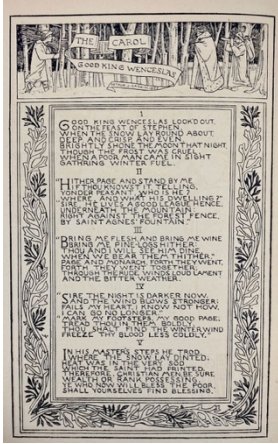 THE CAROL
GOOD KING WENCESLAS
I
GOOD KING WENCESLAS LOOKED OUT,
ON THE FEAST OF STEPHEN,
WHEN THE SNOW LAY ROUND ABOUT,
DEEP, AND CRISP, AND EVEN.
BRIGHTLY SHONE THE MOON THAT NIGHT,
THOUGH THE FROST WAS CRUEL,
WHEN A POOR MAN CAME IN SIGHT
GATH'RING WINTER FUEL.
II
"HITHER PAGE AND STAND BY ME,
IF THOU KNOW'ST IT, TELLING,
YONDER PEASANT, WHO IS HE?
WHERE, AND WHAT HIS DWELLING?"
SIRE, HE LIVES A GOOD LEAGUE HENCE,
UNDERNEATH THE MOUNTAIN;
RIGHT AGAINST THE FOREST FENCE,
BY SAINT AGNES' FOUNTAIN."
III
BRING ME FLESH, AND BRING ME WINE
BRING ME PINE-LOGS HITHER:
THOU AND I WILL SEE HIM DINE,
WHEN WE BEAR THEM THITHER."
PAGE AND MONARCH, FORTH THEY WENT,
FORTH THEY WENT TOGETHER;
THROUGH THE RUDE WIND'S LOUD LAMENT
AND THE BITTER WEATHER.
IV
"SIRE, THE NIGHT IS DARKER NOW,
AND THE WIND BLOWS STRONGER;
FAILS MY HEART, I KNOW NOT HOW,
I CAN GO NO LONGER."
"MARK MY FOOTSTEPS, MY GOOD PAGE,
TREAD THOU IN THEM BOLDLY:
THOU SHALT FIND THE WINTER WIND
FREEZE THY BLOOD LESS COLDLY."
V
IN HIS MASTER'S STEPS HE TROD,
WHERE THE SNOW LAY DINTED;
HEAT WAS IN THE VERY SOD
WHICH THE SAINT HAD PRINTED.
THEREFORE, CHRISTIAN MEN, BE SURE,
WEALTH OR RANK POSSESSING,
YE WHO NOW WILL BLESS THE POOR,
SHALL YOURSELVES FIND BLESSING.